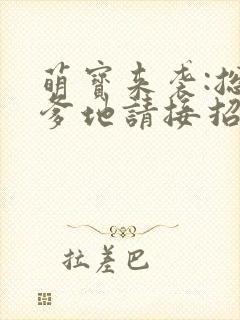 萌寶來襲:總
爹地請接招
拉差巴